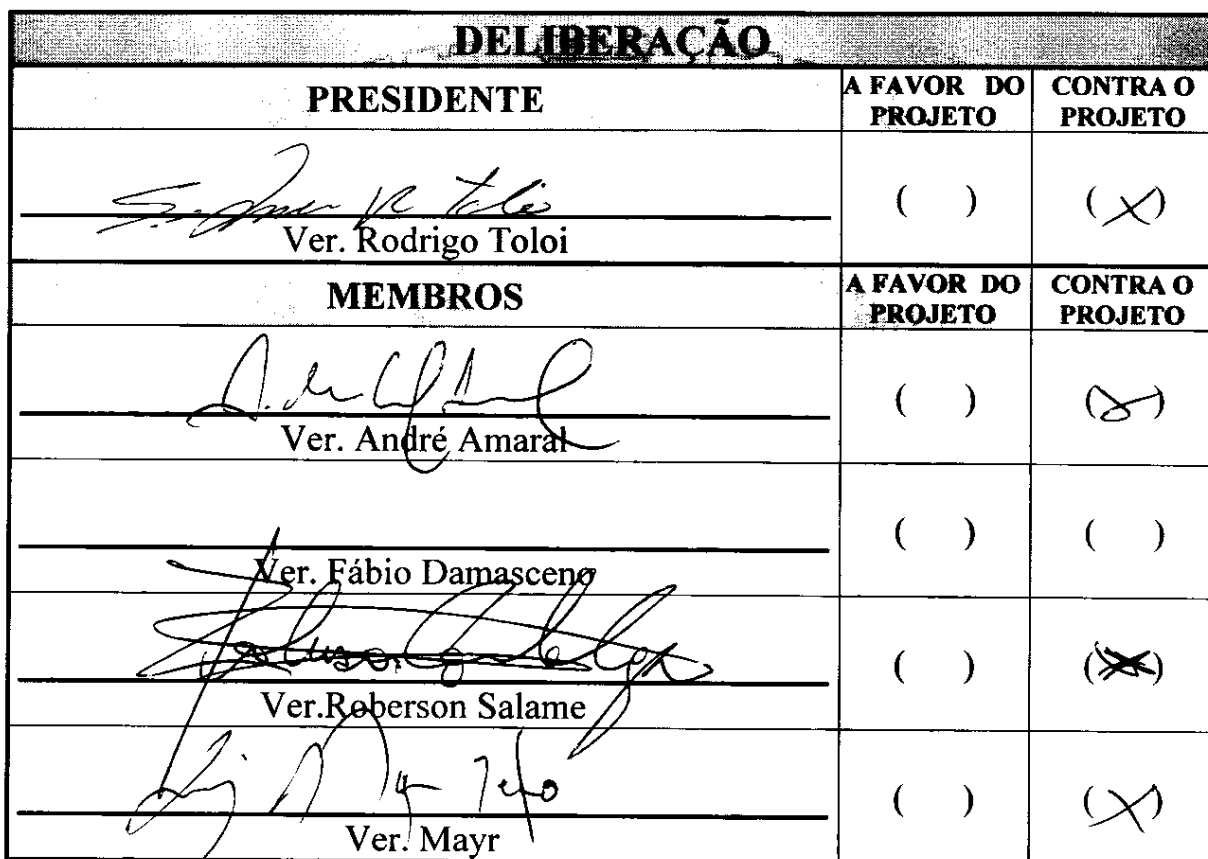 DELIBERAÇÃO
PRESIDENTE
A FAVOR DO
PROJETO
CONTRA O
PROJETO
( ) (X)
Ver. Rodrigo Toloi
MEMBROS
A FAVOR DO
PROJETO
CONTRA O
PROJETO
( ) (X)
Ver. André Amaral
( ) ( )
Ver. Fábio Damasceno
( ) (X)
Ver.Roberson Salame
( ) (X)
Ver. Mayr